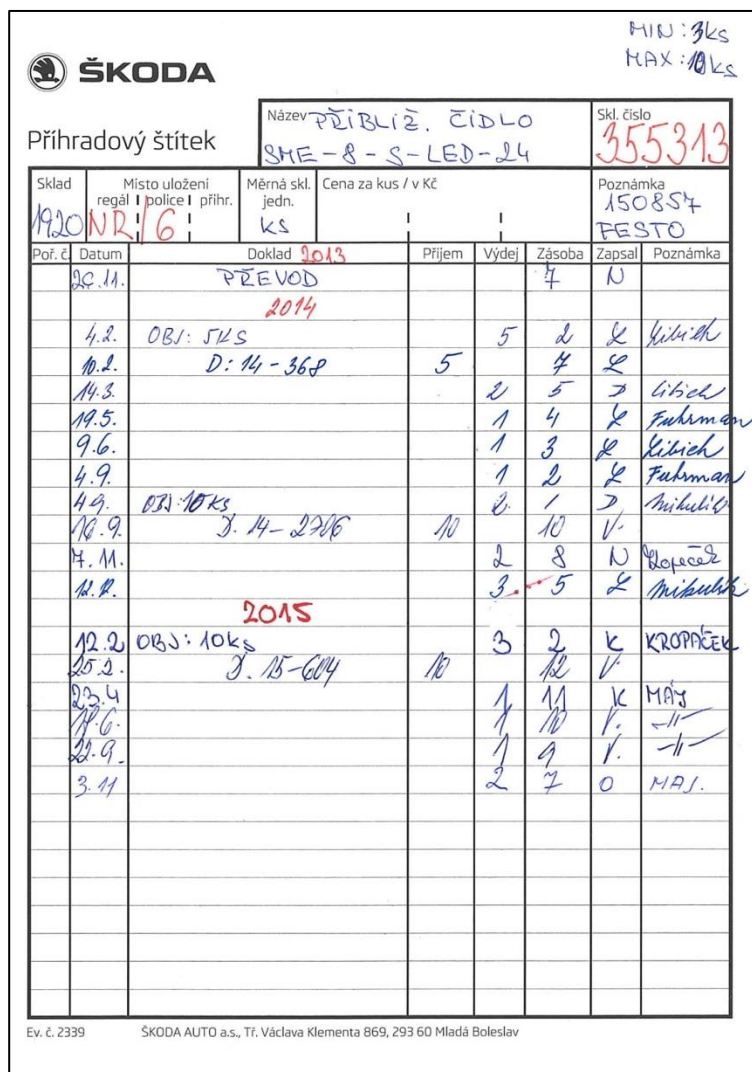 MIN: 3ks
MAX: 10ks
ŠKODA
Příhradový štítek
Název PŘIBLIŽ. ČIDLO
SME-8-S-LED-24
Skl. číslo
355313
Sklad Místo uložení Měrná skl. Cena za kus / v Kč Poznámka
regál police přihr. jedn.
1920 NR/6 ks 150857
FESTO
Poř. č. Datum Doklad 2013 Příjem Výdej Zásoba Zapsal Poznámka
PŘEVOD 7 N
2014
4.2. OBJ: 5KS 5 2 L Libich
10.2. D: 14-368 5 7 L
14.3. 2 5 Libich
19.5. 1 4 L Fuhrman
9.6. 1 3 L Libich
4.9. 1 2 L Fuhrman
4.9. OBJ: 10KS 2 / Mikulík
D. 14-2786 10 10 V.
7.11. 2 8 N Kopeček
12.12. 3 5 L Mikulík
2015
12.2 OBJ: 10ks 3 2 K KROPÁČEK
25.2. D. 15-604 10 12 V.
23.4 1 11 K MÁJ
1 10 V. -//-
22.9. 1 9 V. -//-
3.11 2 7 O MAJ.
Ev. č. 2339 ŠKODA AUTO a.s., Tř. Václava Klementa 869, 293 60 Mladá Boleslav